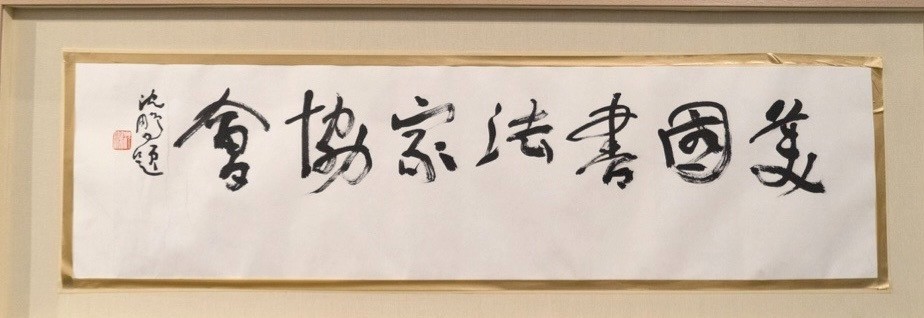 美國書法家協會
沈鵬題